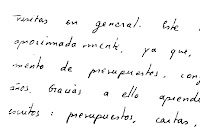 ventas en general. Este
aproximadamente, ya que,
mento de presupuestos, con
años. Gracias a ello aprende
escritos: presupuestos, cartas,